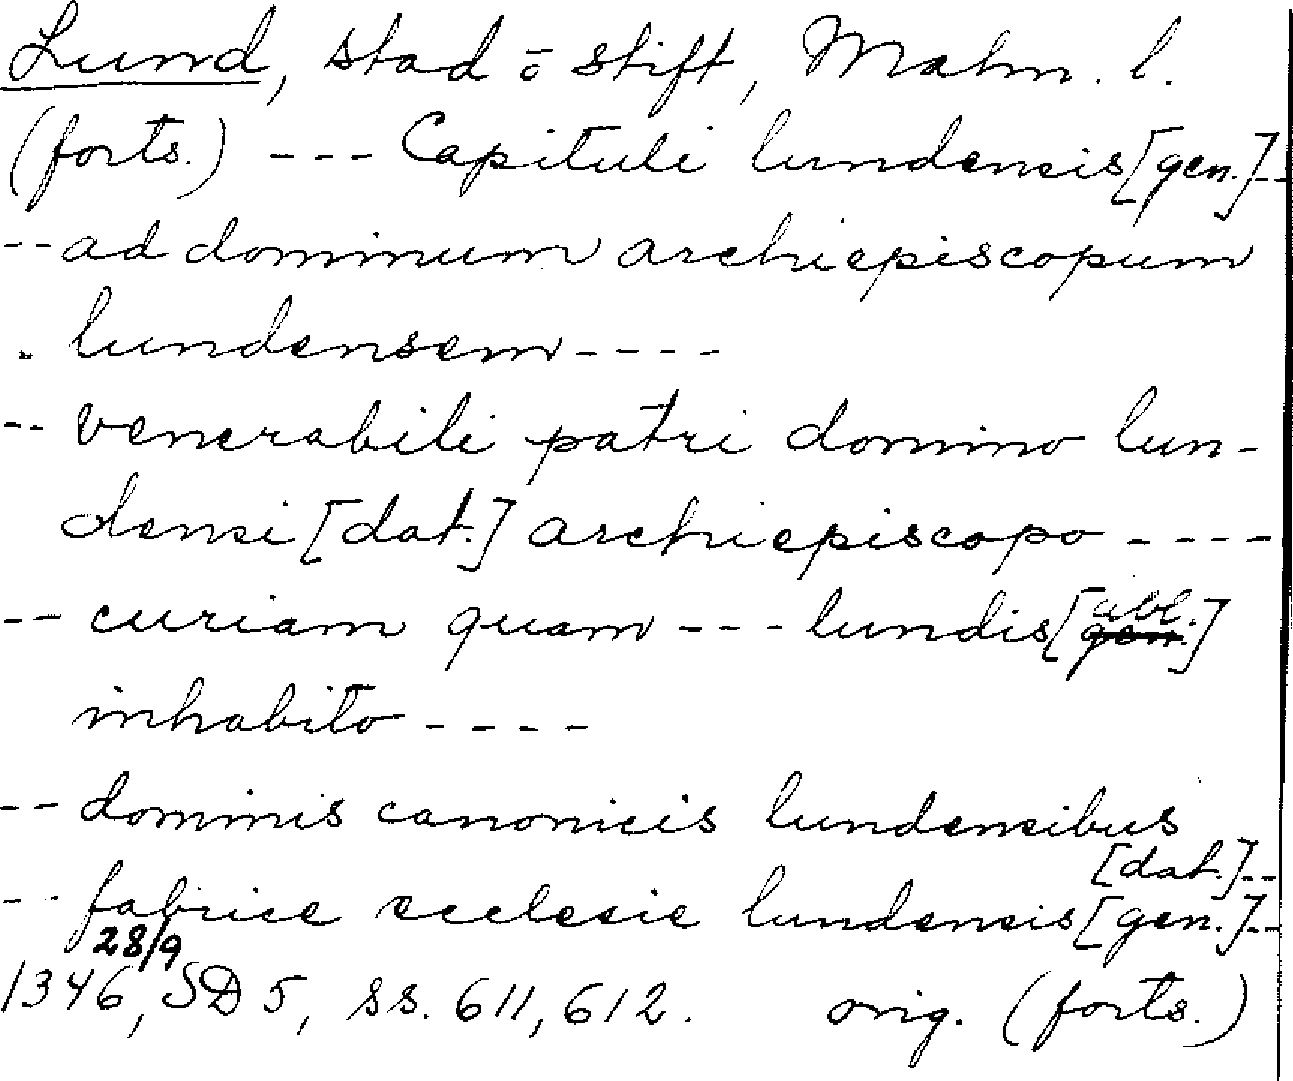 Lund, stad ō stift, Malm. l.
(forts.) --- Capituli lundensis [gen.] --
-- ad dominum archiepiscopum
. lundensem ----
-- venerabili patri domino lun-
densi [dat.] archiepiscopo ----
-- curiam quam --- lundis [abl. gen.]
inhabito ----
-- dominis canonicis lundensibus
[dat.] --
-- fabrice ecclesie lundensis [gen.] --
28/9
1346, SD 5, ss. 611, 612. orig. (forts.)